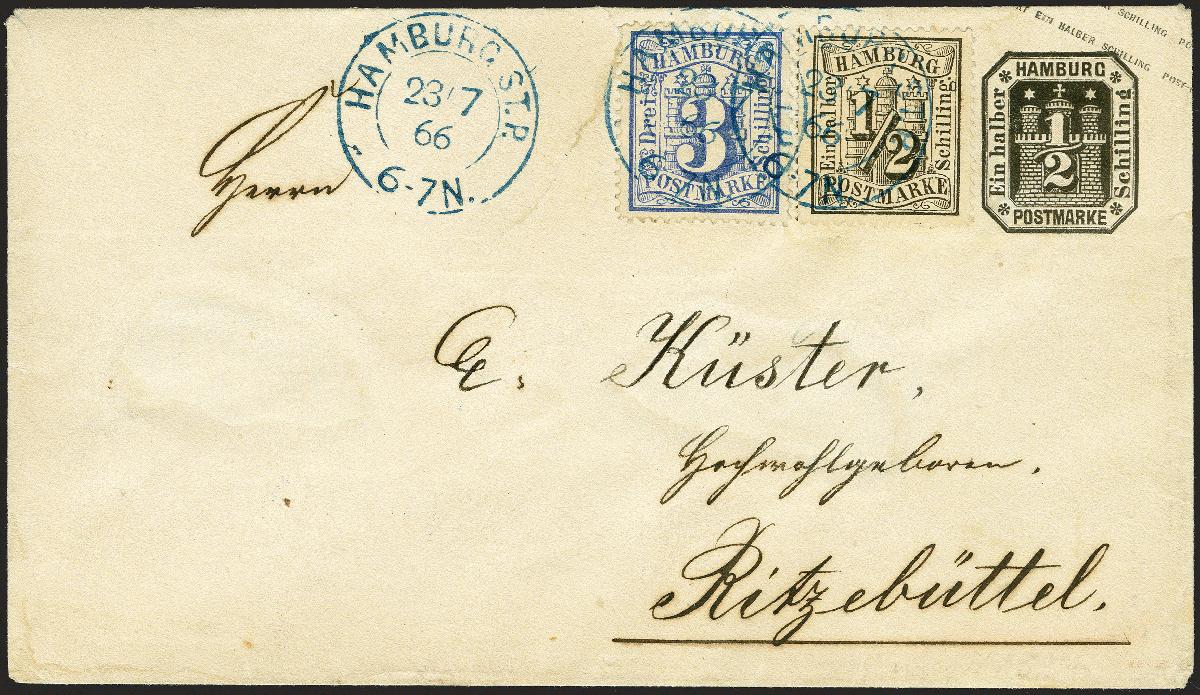 HAMBURG ST.P.
23/7
66
6-7N.
HAMBURG
Drei Schilling
3
POSTMARKE
HAMBURG
Ein halber Schilling
1/2
POSTMARKE
EIN HALBER SCHILLING POST
HALBER SCHILLING POST
HAMBURG
Ein halber Schilling
1/2
POSTMARKE
Herrn
E. Küster,
Hochwohlgeboren.
Ritzebüttel.